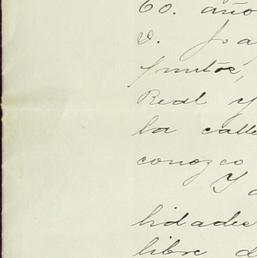 60. año
D. Joa
Real y
la calle
conozco
Y a
lidades
libre d